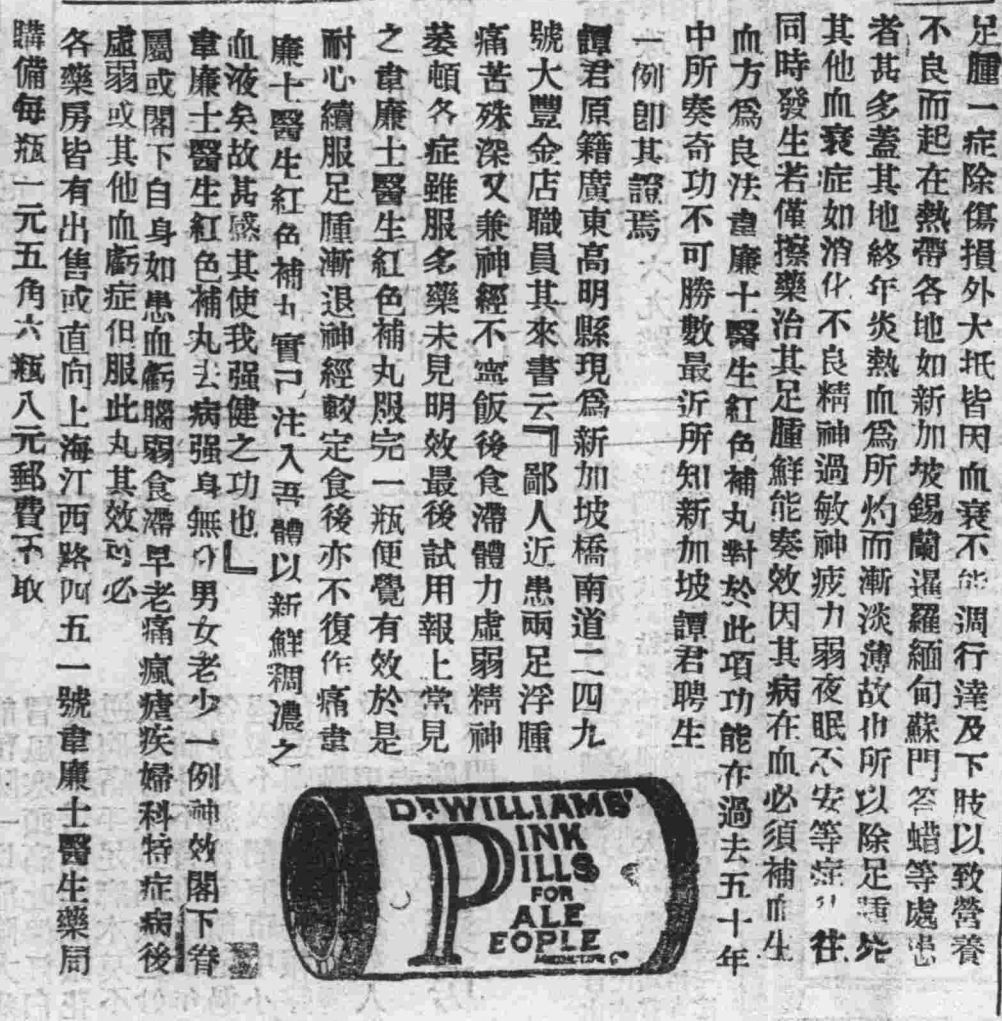 足腫一症除傷損外大抵皆因血衰不能調行達及下肢以致營養
不良而起在熱帶各地如新加坡錫蘭暹羅緬甸蘇門答蜡等處患
者甚多蓋其地終年炎熱血爲所灼而漸淡薄故也所以除足腫外
其他血衰症如消化不良精神過敏神疲力弱夜眠不安等症往
同時發生若僅擦藥治其足腫鮮能奏效因其病在血必須補血生
血方爲良法韋廉士醫生紅色補丸對於此項功能在過去五十年
中所奏奇功不可勝數最近所知新加坡譚君聘生
一例卽其證焉
譚君原籍廣東高明縣現爲新加坡橋南道二四九
號大豐金店職員其來書云『鄙人近患兩足浮腫
痛苦殊深又兼神經不寧飯後食滯體力虛弱精神
萎頓各症雖服多藥未見明效最後試用報上常見
之韋廉士醫生紅色補丸服完一瓶便覺有效於是
耐心續服足腫漸退神經較定食後亦不復作痛韋
廉士醫生紅色補丸實已注入吾體以新鮮稠濃之
血液矣故甚感其使我强健之功也』
韋廉士醫生紅色補丸去病强身無分男女老少一例神效閣下眷
屬或閣下自身如患血虧腦弱食滯早老痛瘋瘧疾婦科特症病後
虛弱或其他血虧症但服此丸其效可必
各藥房皆有出售或直向上海江西路四五一號韋廉士醫生藥局
購備每瓶一元五角六瓶八元郵費不取
DR WILLIAMS'
PINK
PILLS
FOR
PALE
PEOPLE